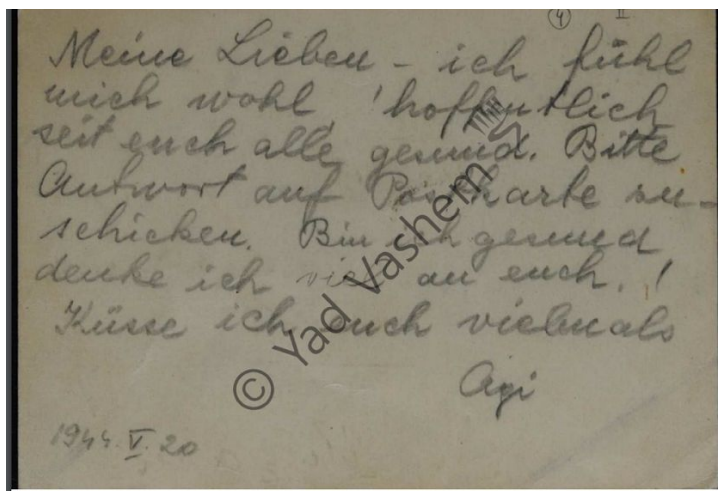 4 II
Meine Lieben – ich fühl
mich wohl, hoffentlich
seit euch alle gesund. Bitte
Antwort auf Postkarte zu-
schicken. Bin ich gesund
denke ich viel an euch. !
Küsse ich euch vielmals
Agi
1944.V.20
© Yad Vashem